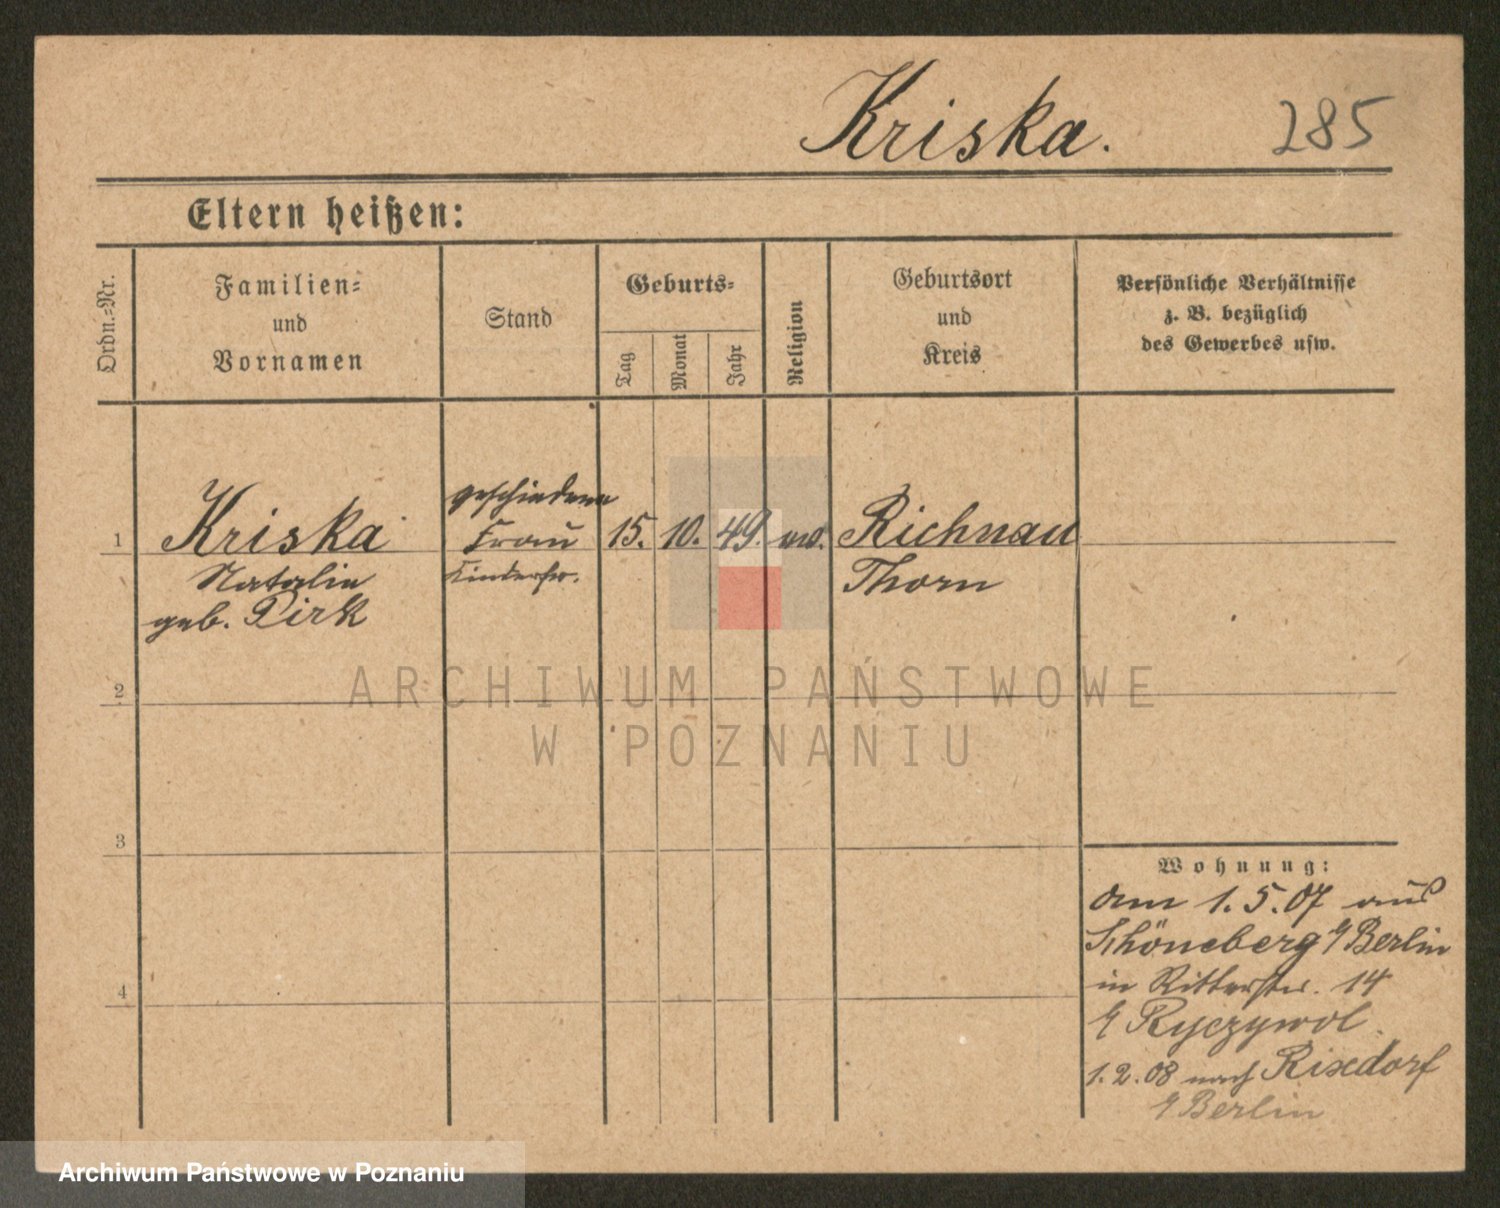 Kriska. 285
Eltern heißen:
Ordn.-Nr.
Familien-
und
Vornamen
Stand
Geburts-
Tag
Monat
Jahr
Religion
Geburtsort
und
Kreis
Persönliche Verhältnisse
z. B. bezüglich
des Gewerbes usw.
1
Kriska
Natalie
geb. Pirk
geschiedene
Frau
15. 10. 49. ev.
Richnau
Thorn
2
3
4
Wohnung:
am 1.5.07 aus
Schöneberg Berlin
in Ritterstr. 14
Ryczywol
1.2.08 nach Rixdorf
Berlin
ARCHIWUM PAŃSTWOWE
W POZNANIU
Archiwum Państwowe w Poznaniu